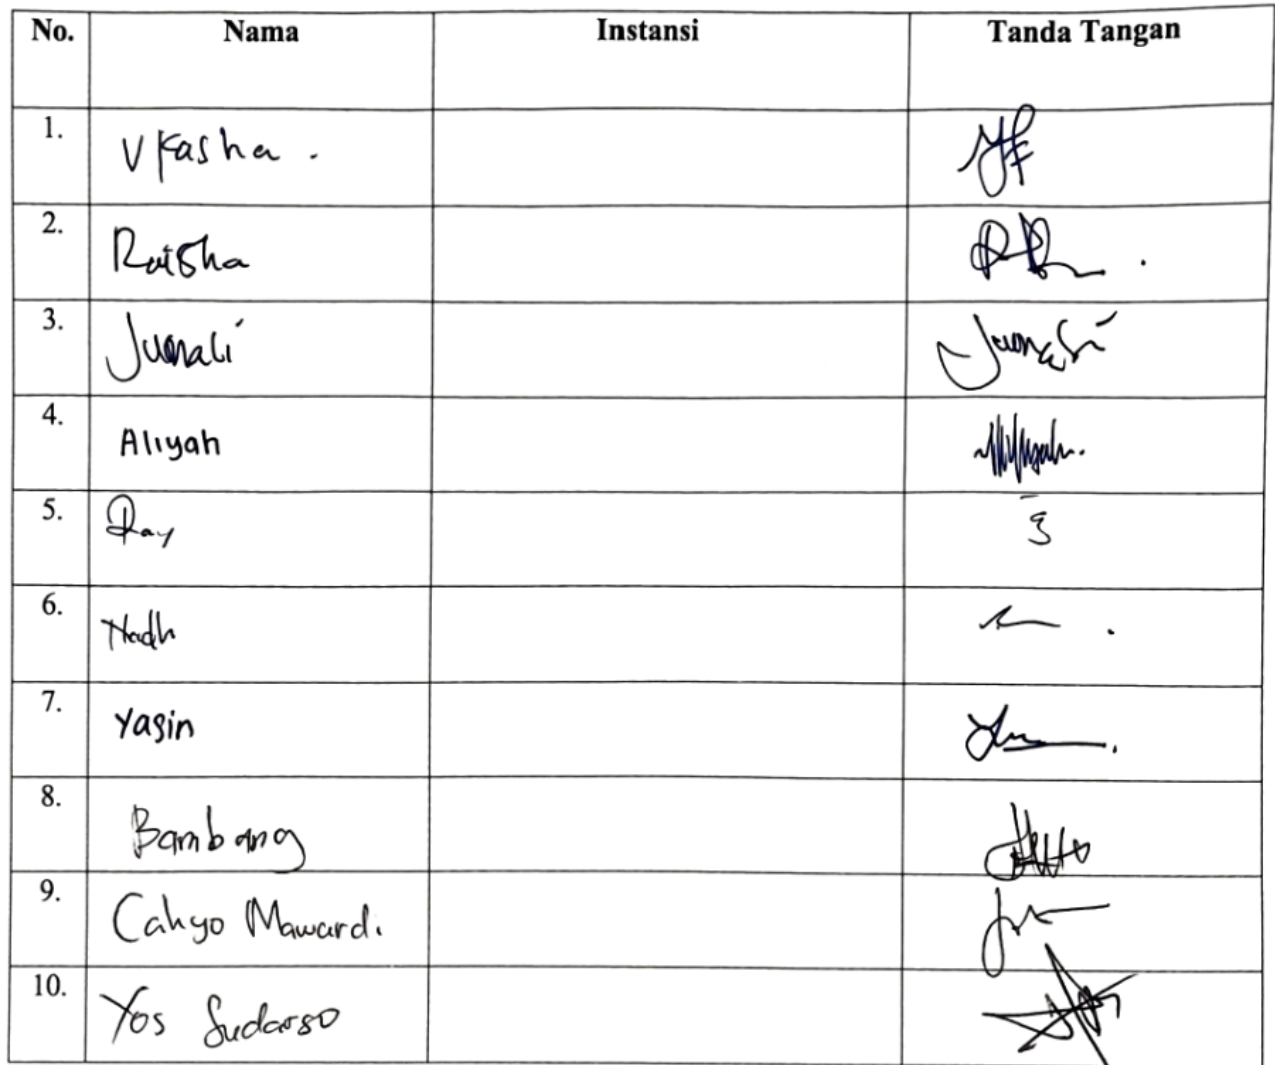 No. Nama Instansi Tanda Tangan
1. Vkasha.
2. Raisha
3. Jumali
4. Aliyah
5. Ray
6. Nadh
7. Yasin
8. Bambang
9. Cahyo Mawardi
10. Yos Sudarso